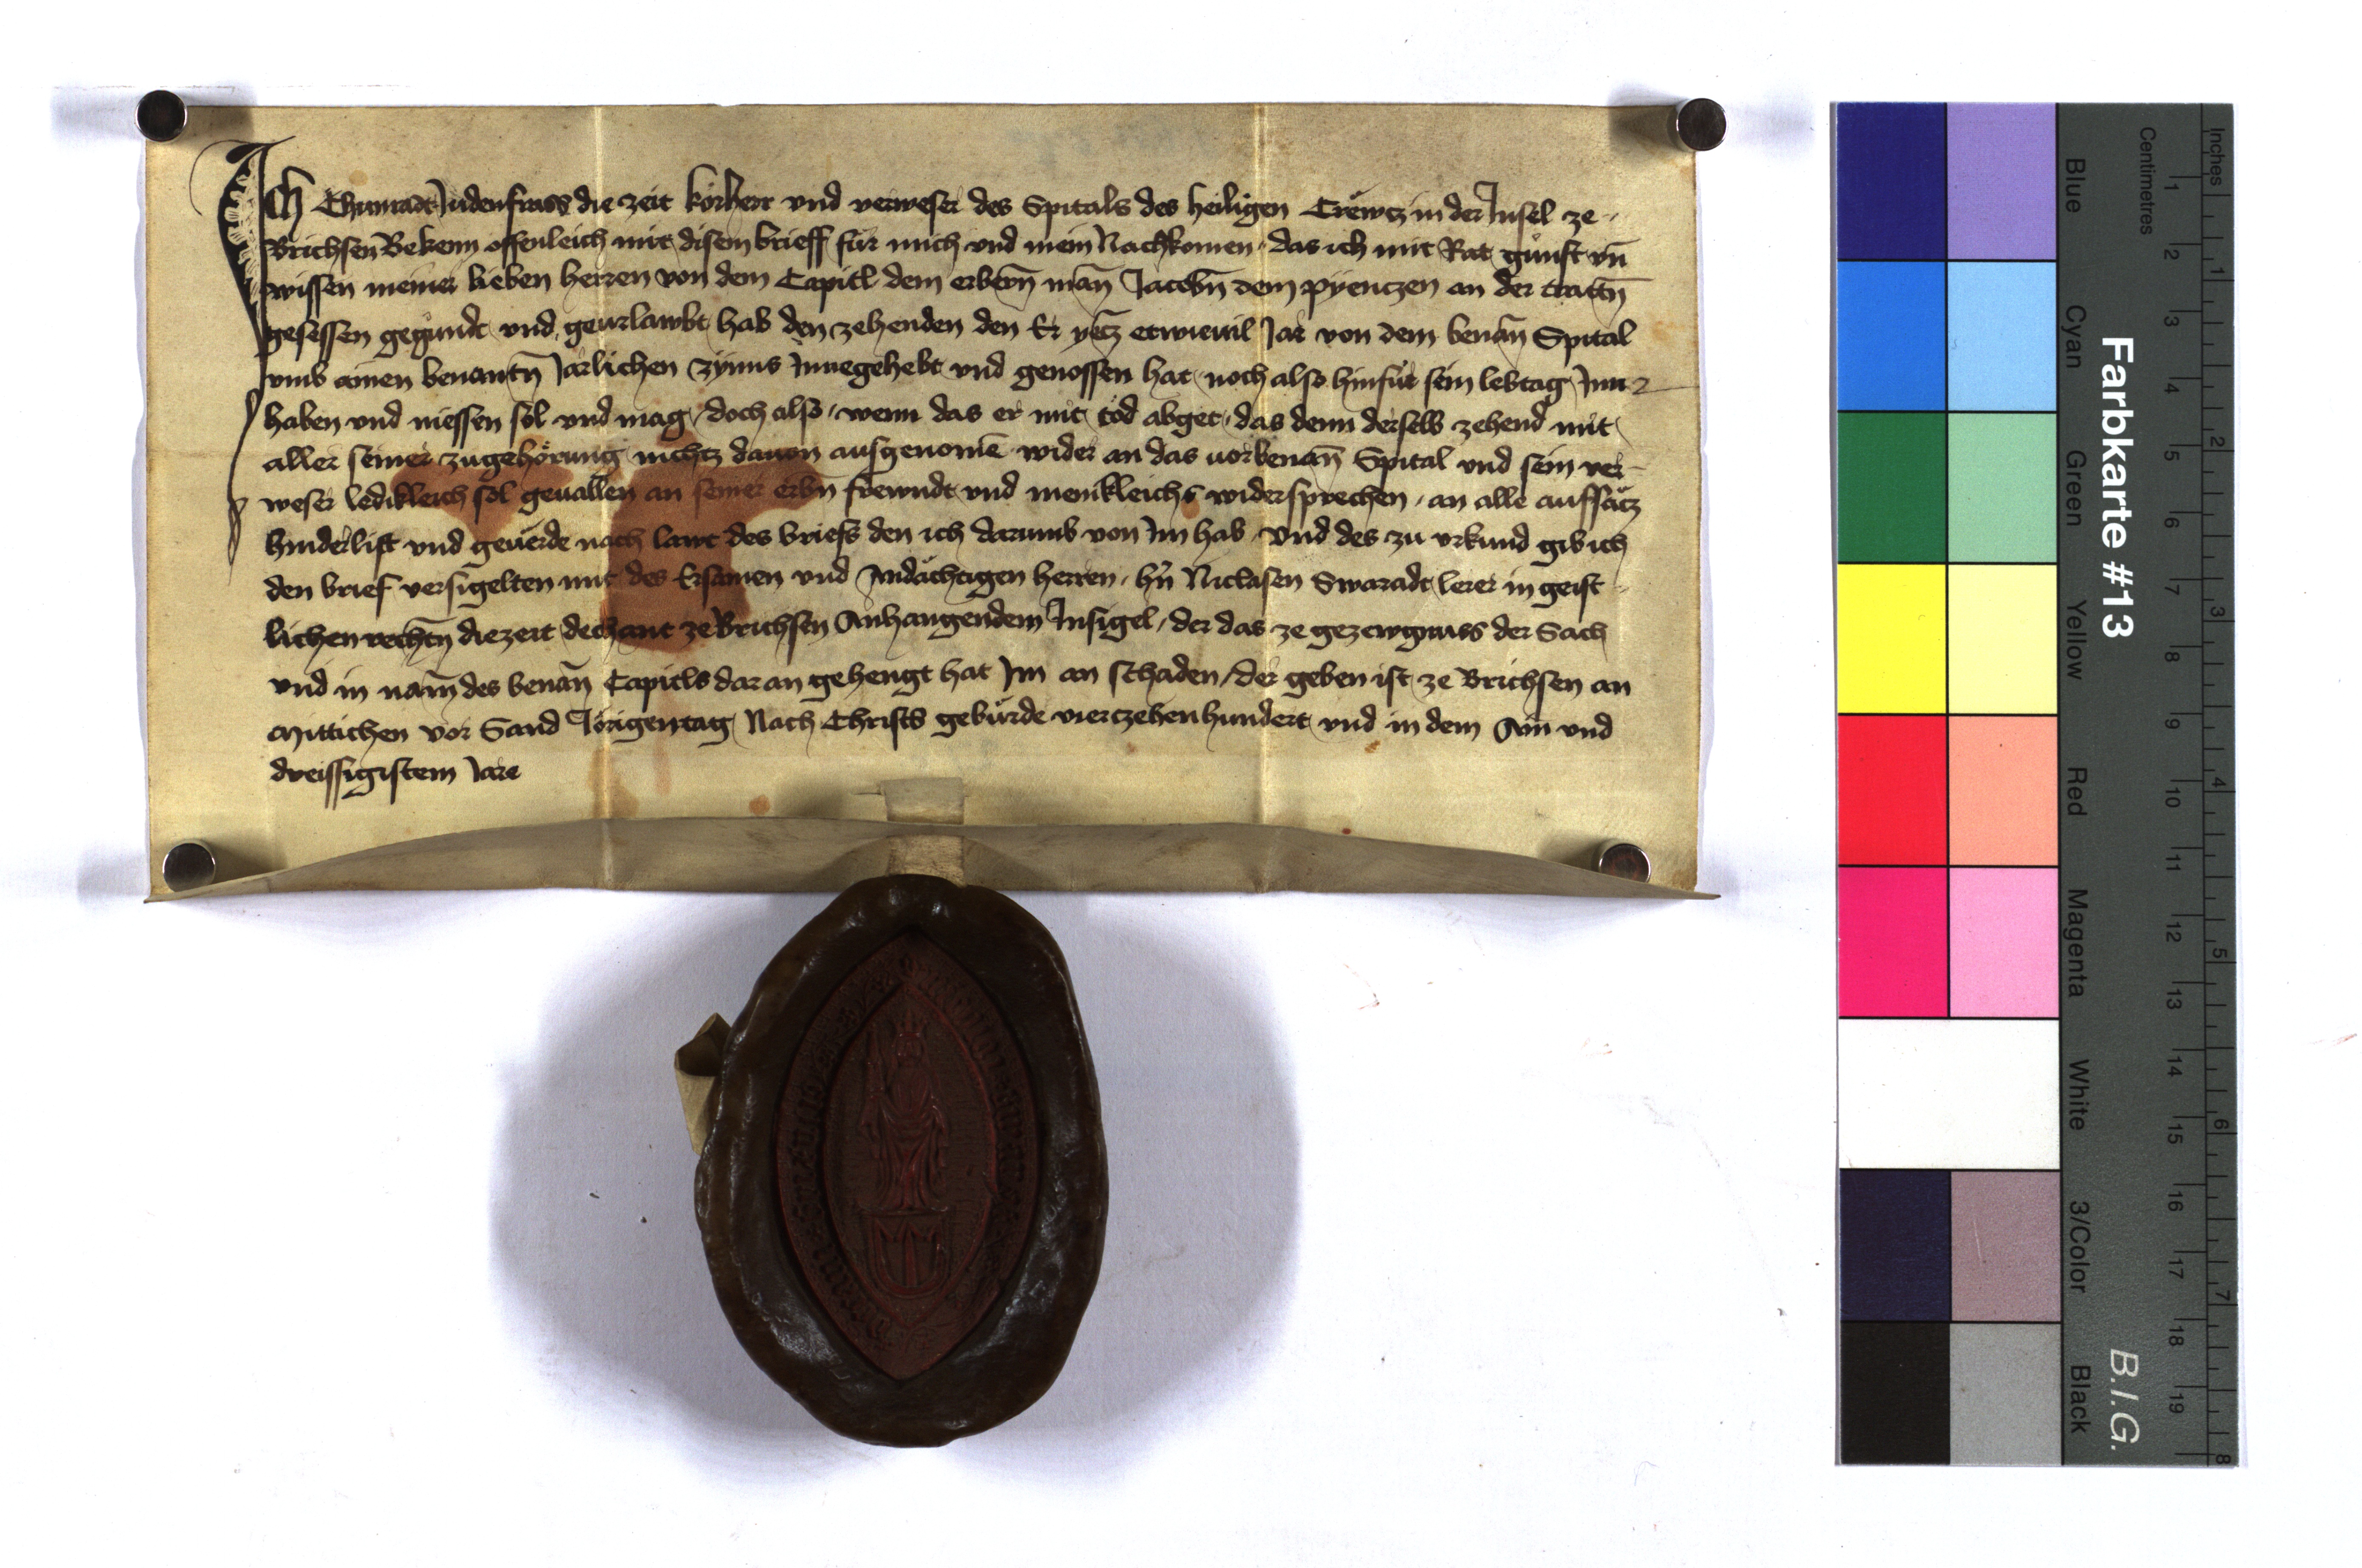 Ich Chunradt Judenfrass die zeit korherr vnd verweser des Spitals des heiligen Crewtz in der Insel ze
Brichsen Bekenn offenleich mit disem brieff für mich vnd mein Nachkomen das ich mit Rat gunst vn̄
wissen meiner lieben herren von dem Capitl dem erbern̄ man̄ Jacobn̄ dem pyenczen an der trattn̄
gesessen gegundt vnd geurlawbt hab den zehenden den Er yecz etwieuil Jar von dem benan̄ Spital
vmb ainen benantn̄ Järlichen zynns Innegehebt vnd genossen hat noch also hinfür sein lebtag Inn
haben vnd niessen sol vnd mag doch also wenn das er mit tod abget das denn derselb zehend mit
aller seiner zugehörung nichtz dauon ausgenomē wider an das uorbenan̄ Spital vnd sein ver-
weser ledikleich sol geuallen an seiner erbn̄ frewndt vnd menikleichs widersprechen an alle auffsäcz
hinderlist vnd geuerde nach lawt des briefs den ich darumb von Im hab Vnd des zu vrkund gib ich
den brief versigelten mit des Ersamen vnd Andächtigen herren hn̄ Niclasen Swaradt lerer in geist
lichen rechtn̄ die zeit dechant ze Brichsen Anhangendem Insigel der das ze gezewgnuss der Sach
vnd in nam̄ des benan̄ Capitls daran gehengt hat Im an schaden der geben ist ze Brichsen an
Mittichen vor Sand Jörigentag Nach Christs geburde vierczehenhundert vnd in dem Ain vnd
dreissigistem Jare
Farbkarte #13
B.I.G.
Centimetres
Inches
Blue
Cyan
Green
Yellow
Red
Magenta
White
3/Color
Black
1 2 3 4 5 6 7 8 9 10 11 12 13 14 15 16 17 18 19
1 2 3 4 5 6 7 8